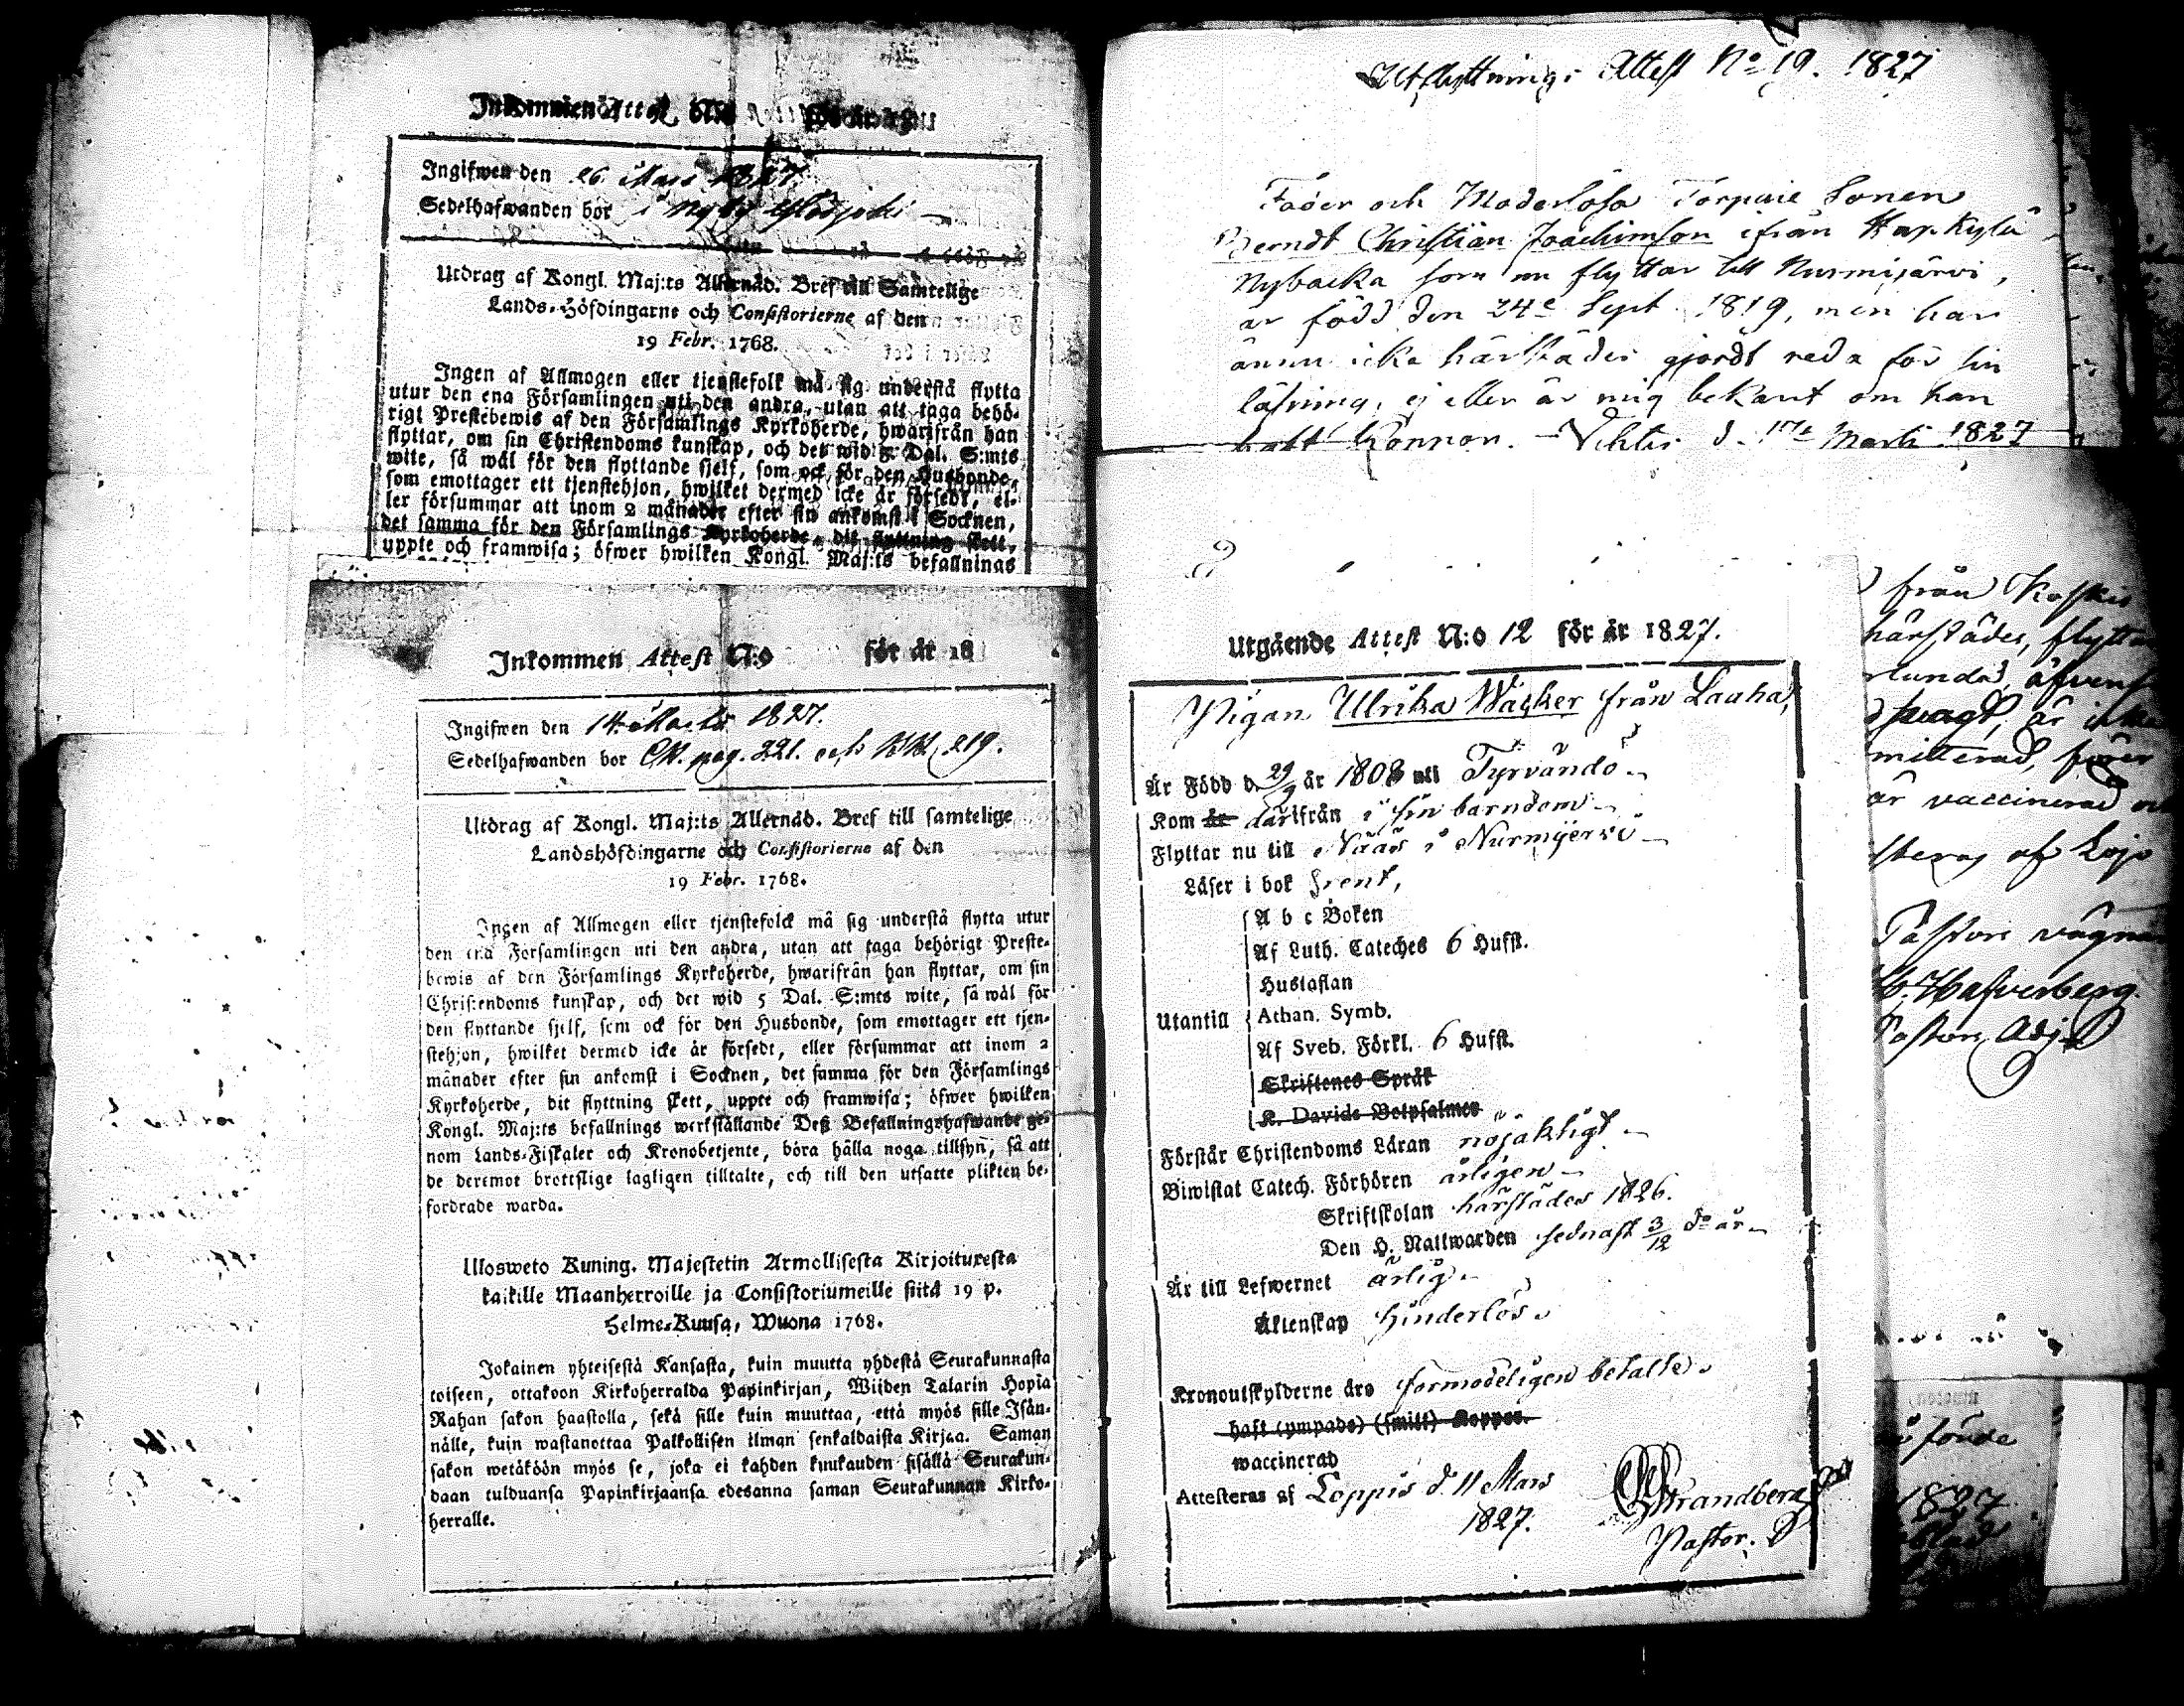 Inkommen Attest N:o för år 18
Ingifwen den 26 Mars 1827.
Sedelhafwanden bor i Nyby
Utdrag af Kongl. Maj:ts Allernåd. Bref till Samtelige
Lands-Höfdingarne och Consistorierne af den
19 Febr. 1768.
Ingen af Allmogen eller tjenstefolk må sig understå flytta
utur den ena Församlingen uti den andra, utan att taga behö-
rigt Prestebewis af den Församlings Kyrkoherde, hwarifrån han
flyttar, om sin Christendoms kunskap, och det wid 5 Dal. S:mts
wite, så wäl för den flyttande sjelf, som ock för den Husbonde,
som emottager ett tjenstehjon, hwilket dermed icke är försedt, el-
ler försummar att inom 2 månader efter sin ankomst i Socknen,
det samma för den Församlings Kyrkoherde, dit flyttning skett,
uppte och framwisa; öfwer hwilken Kongl. Maj:ts befallnings
Inkommen Attest N:o för år 18
Ingifwen den 14 Martii 1827.
Sedelhafwanden bor CK. pag. 221. och KK 219.
Utdrag af Kongl. Maj:ts Allernåd. Bref till samtelige
Landshöfdingarne och Consistorierne af den
19 Febr. 1768.
Ingen af Allmogen eller tjenstefolck må sig understå flytta utur
den ena Församlingen uti den andra, utan att taga behörigt Preste-
bewis af den Församlings Kyrkoherde, hwarifrån han flyttar, om sin
Christendoms kunskap, och det wid 5 Dal. S:mts wite, så wäl för
den flyttande sjelf, som ock för den Husbonde, som emottager ett tjen-
stehjon, hwilket dermed icke är försedt, eller försummar att inom 2
månader efter sin ankomst i Socknen, det samma för den Församlings
Kyrkoherde, dit flyttning skett, uppte och framwisa; öfwer hwilken
Kongl. Maj:ts befallnings werkställande Deß Befallningshafwande ge-
nom Lands-Fiskaler och Kronobetjente, böra hålla noga tillsyn, så att
de deremot brottslige lagligen tilltalte, och till den utsatte plikten be-
fordrade warda.
Ulosweto Kuning. Majestetin Armollisesta Kirjoituxesta
kaikille Maanherroille ja Consistoriumeille siitä 19 p.
Helme-Kuusa, Wuona 1768.
Jokainen yhteisestä Kansasta, kuin muutta yhdestä Seurakunnasta
toiseen, ottakoon Kirkoherralda Papinkirjan, Wijden Talarin Hopia
Rahan sakon haastolla, sekä sille kuin muuttaa, että myös sille Isän-
nälle, kuin wastanottaa Palkollisen ilman senkaldaista Kirjaa. Saman
sakon wetäköön myös se, joka ei kahden kuukauden sisällä Seurakun-
daan tulduansa Papinkirjaansa edesanna saman Seurakunnan Kirko-
herralle.
Utflyttnings Attest No 19. 1827
Fader och Moderlösa Torpare Sonen
Berndt Christian Joachimson ifrån Haps Kylä
Nybacka som nu flyttar till Nurmijärvi,
är född den 24e Sept 1819, men har
ännu icke härstädes gjordt reda för sin
läsning, ej eller är mig bekant om han
haft Koppor. – Vichtis d. 17e Martii 1827
Utgående Attest N:o 12 för år 1827.
Pigan Ulrika Wacker från Lauha,
Är Född d. 29/9 år 1808 uti Tyrvändö
Kom är därifrån i sin barndom
Flyttar nu till Nääs i Nurmijervi
Läser i bok rent,
A b c Boken
Af Luth. Cateches 6 Hufst.
Hustaflan
Utantill Athan. Symb.
Af Sveb. Förkl. 6 Hufst.
Skriftenes Språk
K. Davids Botpsalmer
Förstår Christendoms Läran nöjaktigt
Biwistat Catech. Förhören årligen
Skriftskolan härstädes 1826.
Den H. Nattwarden sednast 3/12 do år
Är till Lefwernet ärlig
Äktenskap hinderlös
Kronoutskylderne äro förmodeligen betalte
haft (ympade) (smitt) Koppor.
waccinerad
Attesteras af Loppis d. 11 Mars
1827.
Strandberg
Pastor.
från Koskis
härstädes, flyttar
är vaccinerad
af Lojo
Pastors vägnar
Hafverberg.
Pastors Adj.
1827